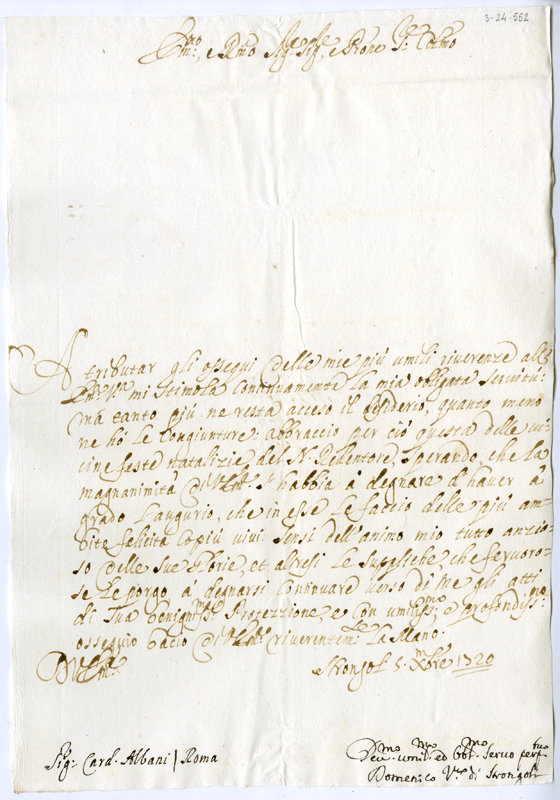 3-24-552
Em:mo, e Rmo Sig.r Sig.r, e Prone Col:mo
A tributar gli ossequi delle mie più umili riverenze all'
Em:za V:ra mi stimola continuamente la mia obligata servitù:
mà tanto più ne resta acceso il desiderio, quanto meno
ne hò le congiunture: abbraccio per ciò questa delle vi-
cine feste natalizie del N. Redentore, sperando, che la
magnanimità di V. Em: si habbia à degnare d'haver à
grado l'augurio, che in esse le faccio delle più am-
bite felicità co più vivi sensi dell'animo mio tutto anzio-
so delle Sue glorie, et altresi le suppliche che fervoro-
se le porgo, à degnarsi continuare verso di me gli atti
di Sua benign:ma Protezzione, e con umiliss:mo, e profondiss:mo
ossequio bacio di V. Em: riverentem:te la Mano:
Di V. Em:
Strongoli 5: Xmbre 1720
Sig.r Card. Albani / Roma
Dev:mo umil:mo ed obl:mo servo perp:tuo
Domenico V:vo di Strongoli